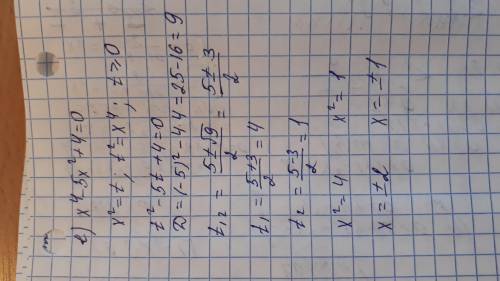 в) x⁴-5x²+4=0
x²=t; t²=x⁴; t≥0
t²-5t+4=0
D=(-5)²-4·4=25-16=9
t₁,₂ = (5±√9)/2 = (5±3)/2
t₁ = (5+3)/2 = 4
t₂ = (5-3)/2 = 1
x²=4 x²=1
x=±2 x=±1